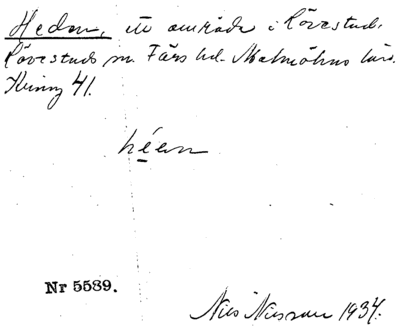 Heden, ett område i Lövestad,
Lövestads sn. Färs hd. Malmöhus län.
41.
héen
Nr 5589.
Nils Nilsson 1934.